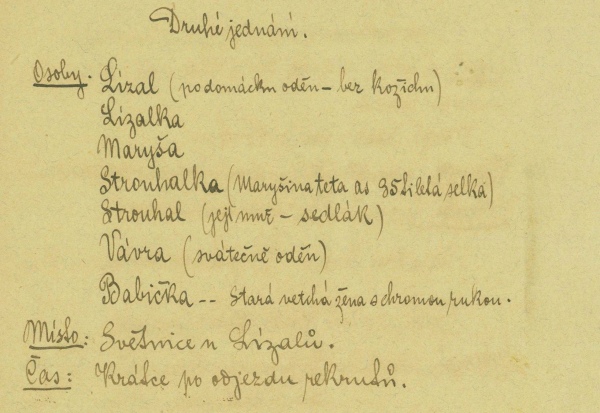 Druhé jednání.
Osoby. Lízal (podomácku oděn - bez kožichu)
Lízalka
Maryša
Strouhalka (Maryšina teta as 35tiletá selka)
Strouhal (její muž - sedlák)
Vávra (svátečně oděn)
Babička -- stará vetchá žena s chromou rukou.
Místo: Světnice u Lízalů.
Čas: Krátce po odjezdu rekrutů.